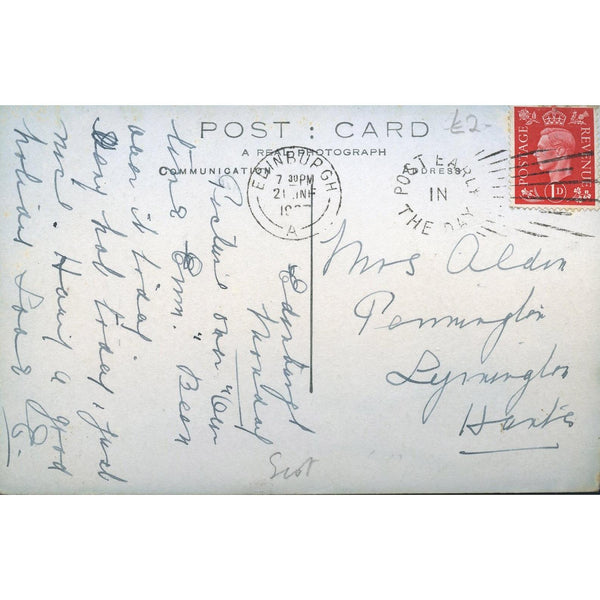 POST : CARD
A REAL PHOTOGRAPH
COMMUNICATION
ADDRESS
£2-
POSTAGE
REVENUE
1D
EDINBURGH
7 30PM
21 JNE
A
POST EARLY
IN
THE DAY
Edinburgh
Monday
Picture over "Em
over it today.
Very hot today, just
nice. Having a good
holiday Love
E.
Mrs Aldin
Pennington
Lymington
Hants
Scot